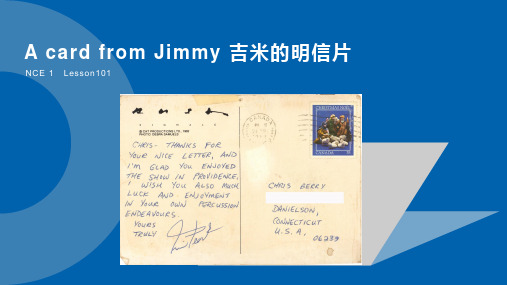 A card from Jimmy 吉米的明信片
NCE 1 Lesson101
CHRIS- THANKS FOR
YOUR NICE LETTER, AND
I'M GLAD YOU ENJOYED
THE SHOW IN PROVIDENCE.
I WISH YOU ALSO MUCH
LUCK AND ENJOYMENT
IN YOUR OWN PERCUSSION
ENDEAVOURS.
YOURS
TRULY
CANADA
CHRISTMAS
CANADA
CHRIS BERRY
DANIELSON,
CONNECTICUT
U.S.A.
06239